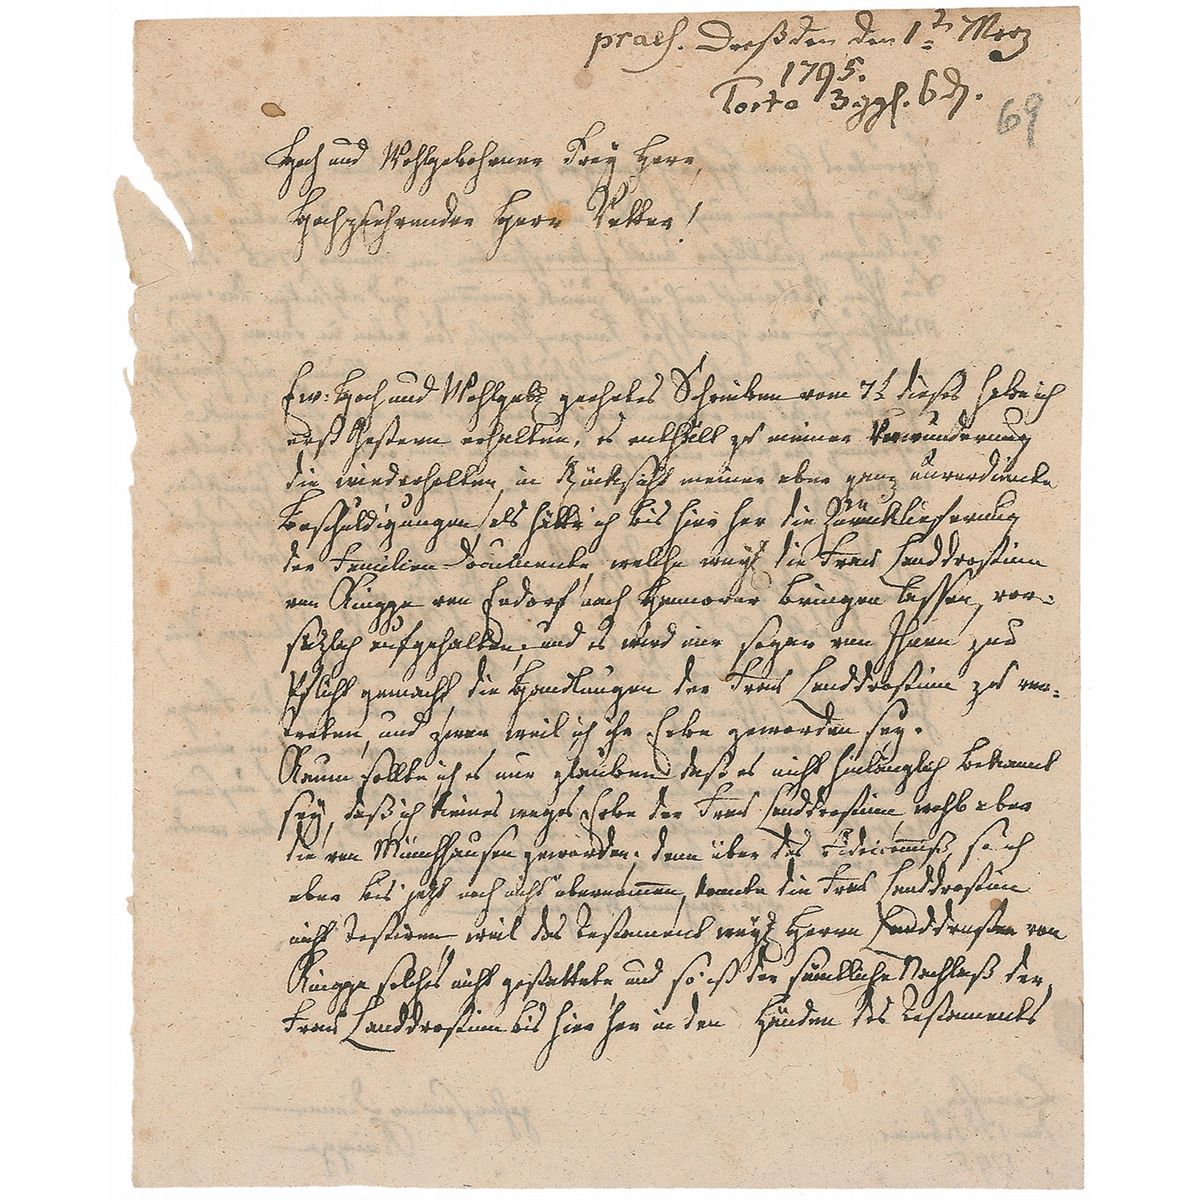 praes. Dreßden den 1t Merz
1795.
Porto 3 ggl. 6 d.
69
Hoch und Wohlgebohrner Frey Herr,
Hochzuehrender Herr Vetter!
Ew: Hoch und Wohlgeb geehrtes Schreiben vom 7t dieses habe ich
erst Gestern erhalten, es enthält zu meiner Verwunderung
die wiederholten in Rücksicht meiner aber ganz unverdiente
Beschuldigungen, als hätte ich bis hier her die Zurücklieferung
der Familien Documente welche weyl die Frau Landdrostinn
von Knigge von Endorf nach Hannover bringen lassen, vor-
sezlich aufgehalten, und es wird mir sogar von Ihnen zur
Pflicht gemacht, die Handlungen der Frau Landdrostinn zu ver-
treten, und zwar weil ich ihr Erbe geworden sey.
Kaum sollte ich es mir glauben daß es nicht hinlänglich bekannt
sey, daß ich keines weges Erbe der Frau Landdrostinn, wohl aber
die von Münchhausen geworden, denn über das Fideicommiß, so ich
aber bis jetzt noch nicht übernommen, konte die Frau Landdrostinn
nicht Testiren, weil das Testament weyl Herrn Landdrosten von
Knigge solches nicht gestattete und so ist der sämtliche Nachlaß der
Frau Landdrostinn bis hier her in den Händen des Testaments